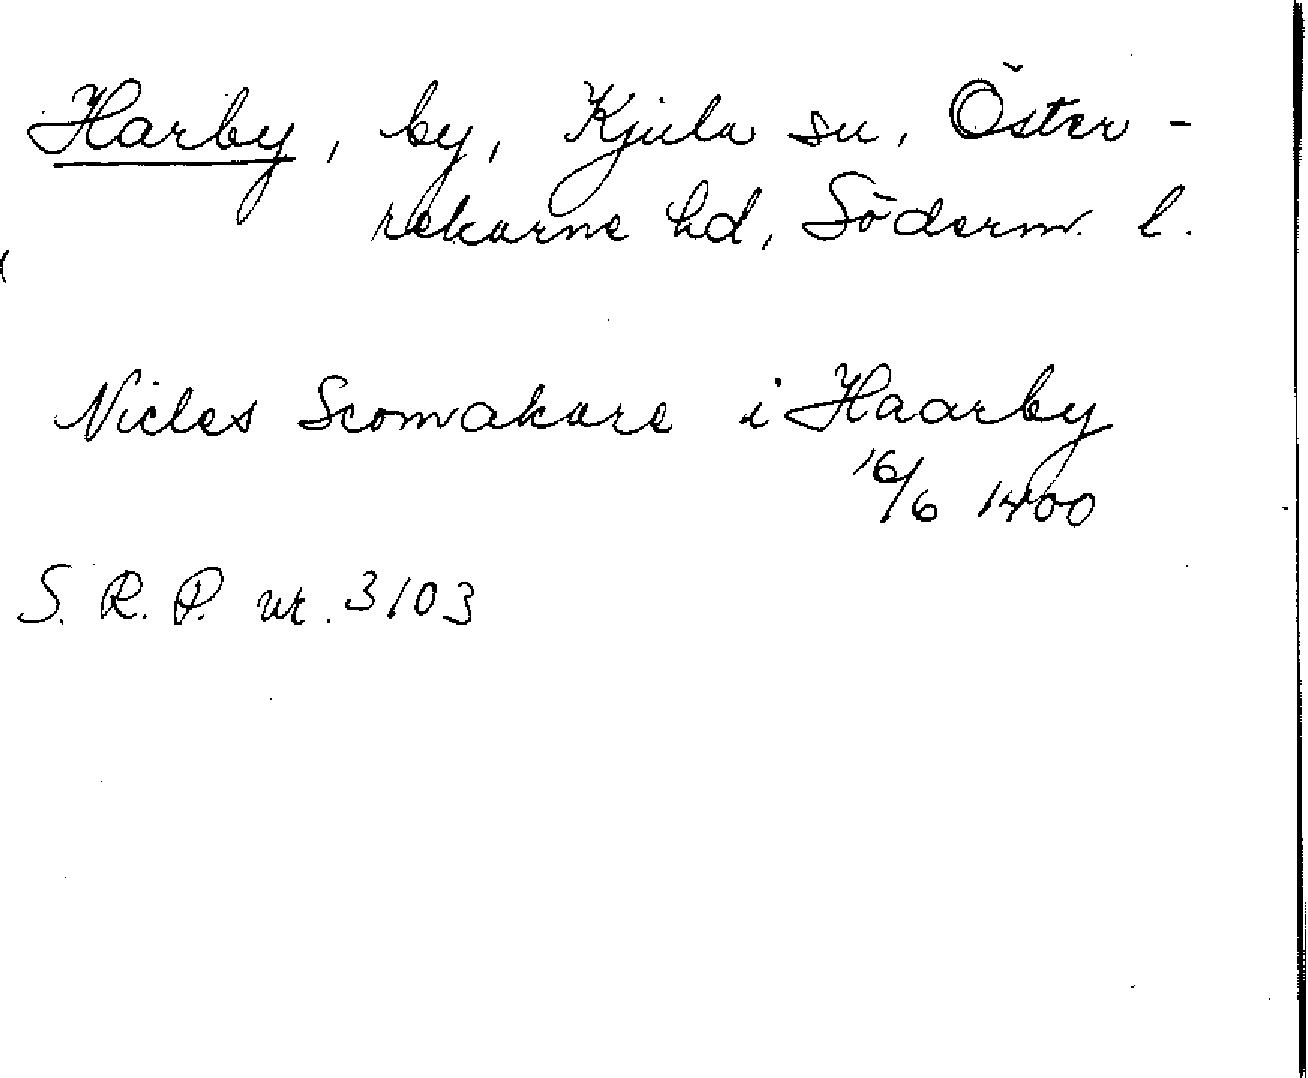 Harby, by, Kjula sn, Öster-
rekarne hd, Söderm. l.
Niclas Scomakare i Haarby
16/6 1400
S. R. P. nr. 3103